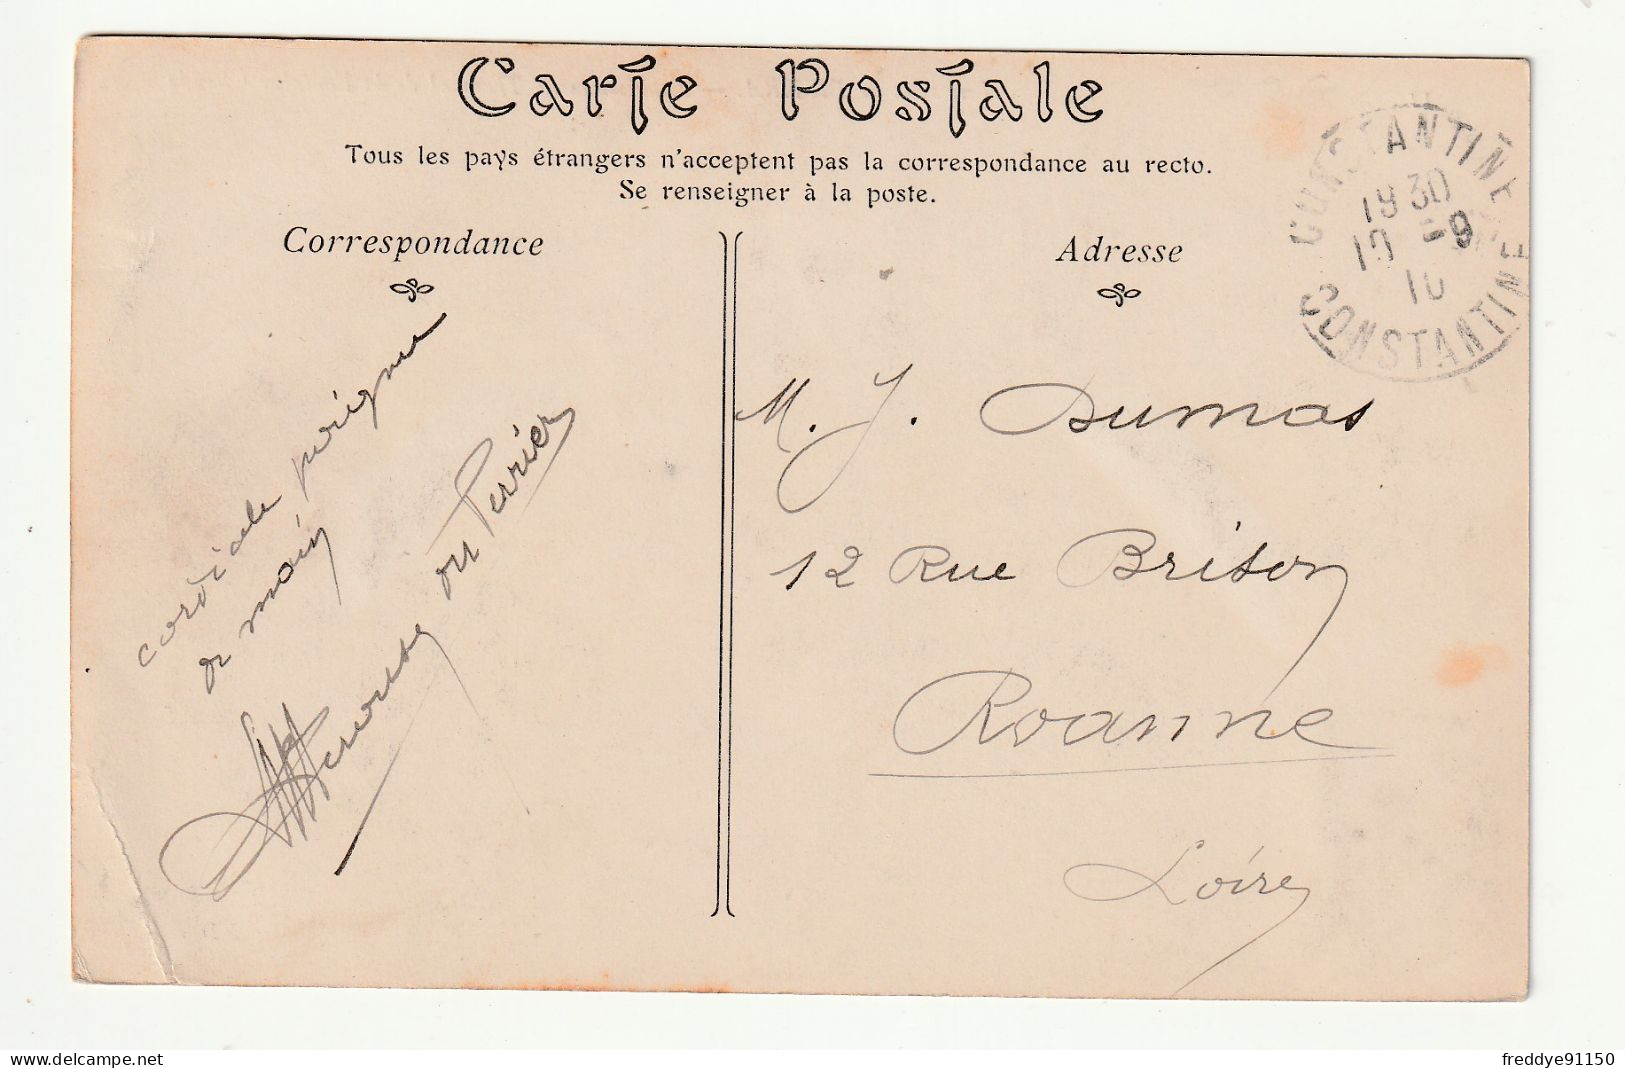 Carte Postale
Tous les pays étrangers n'acceptent pas la correspondance au recto.
Se renseigner à la poste.
Correspondance
Adresse
CONSTANTINE
1930
10 -9
10
CONSTANTINE
cordiale poignée
de main
ou Perrier
M. J. Dumas
12 Rue Brison
Roanne
Loire
www.delcampe.net
freddye91150